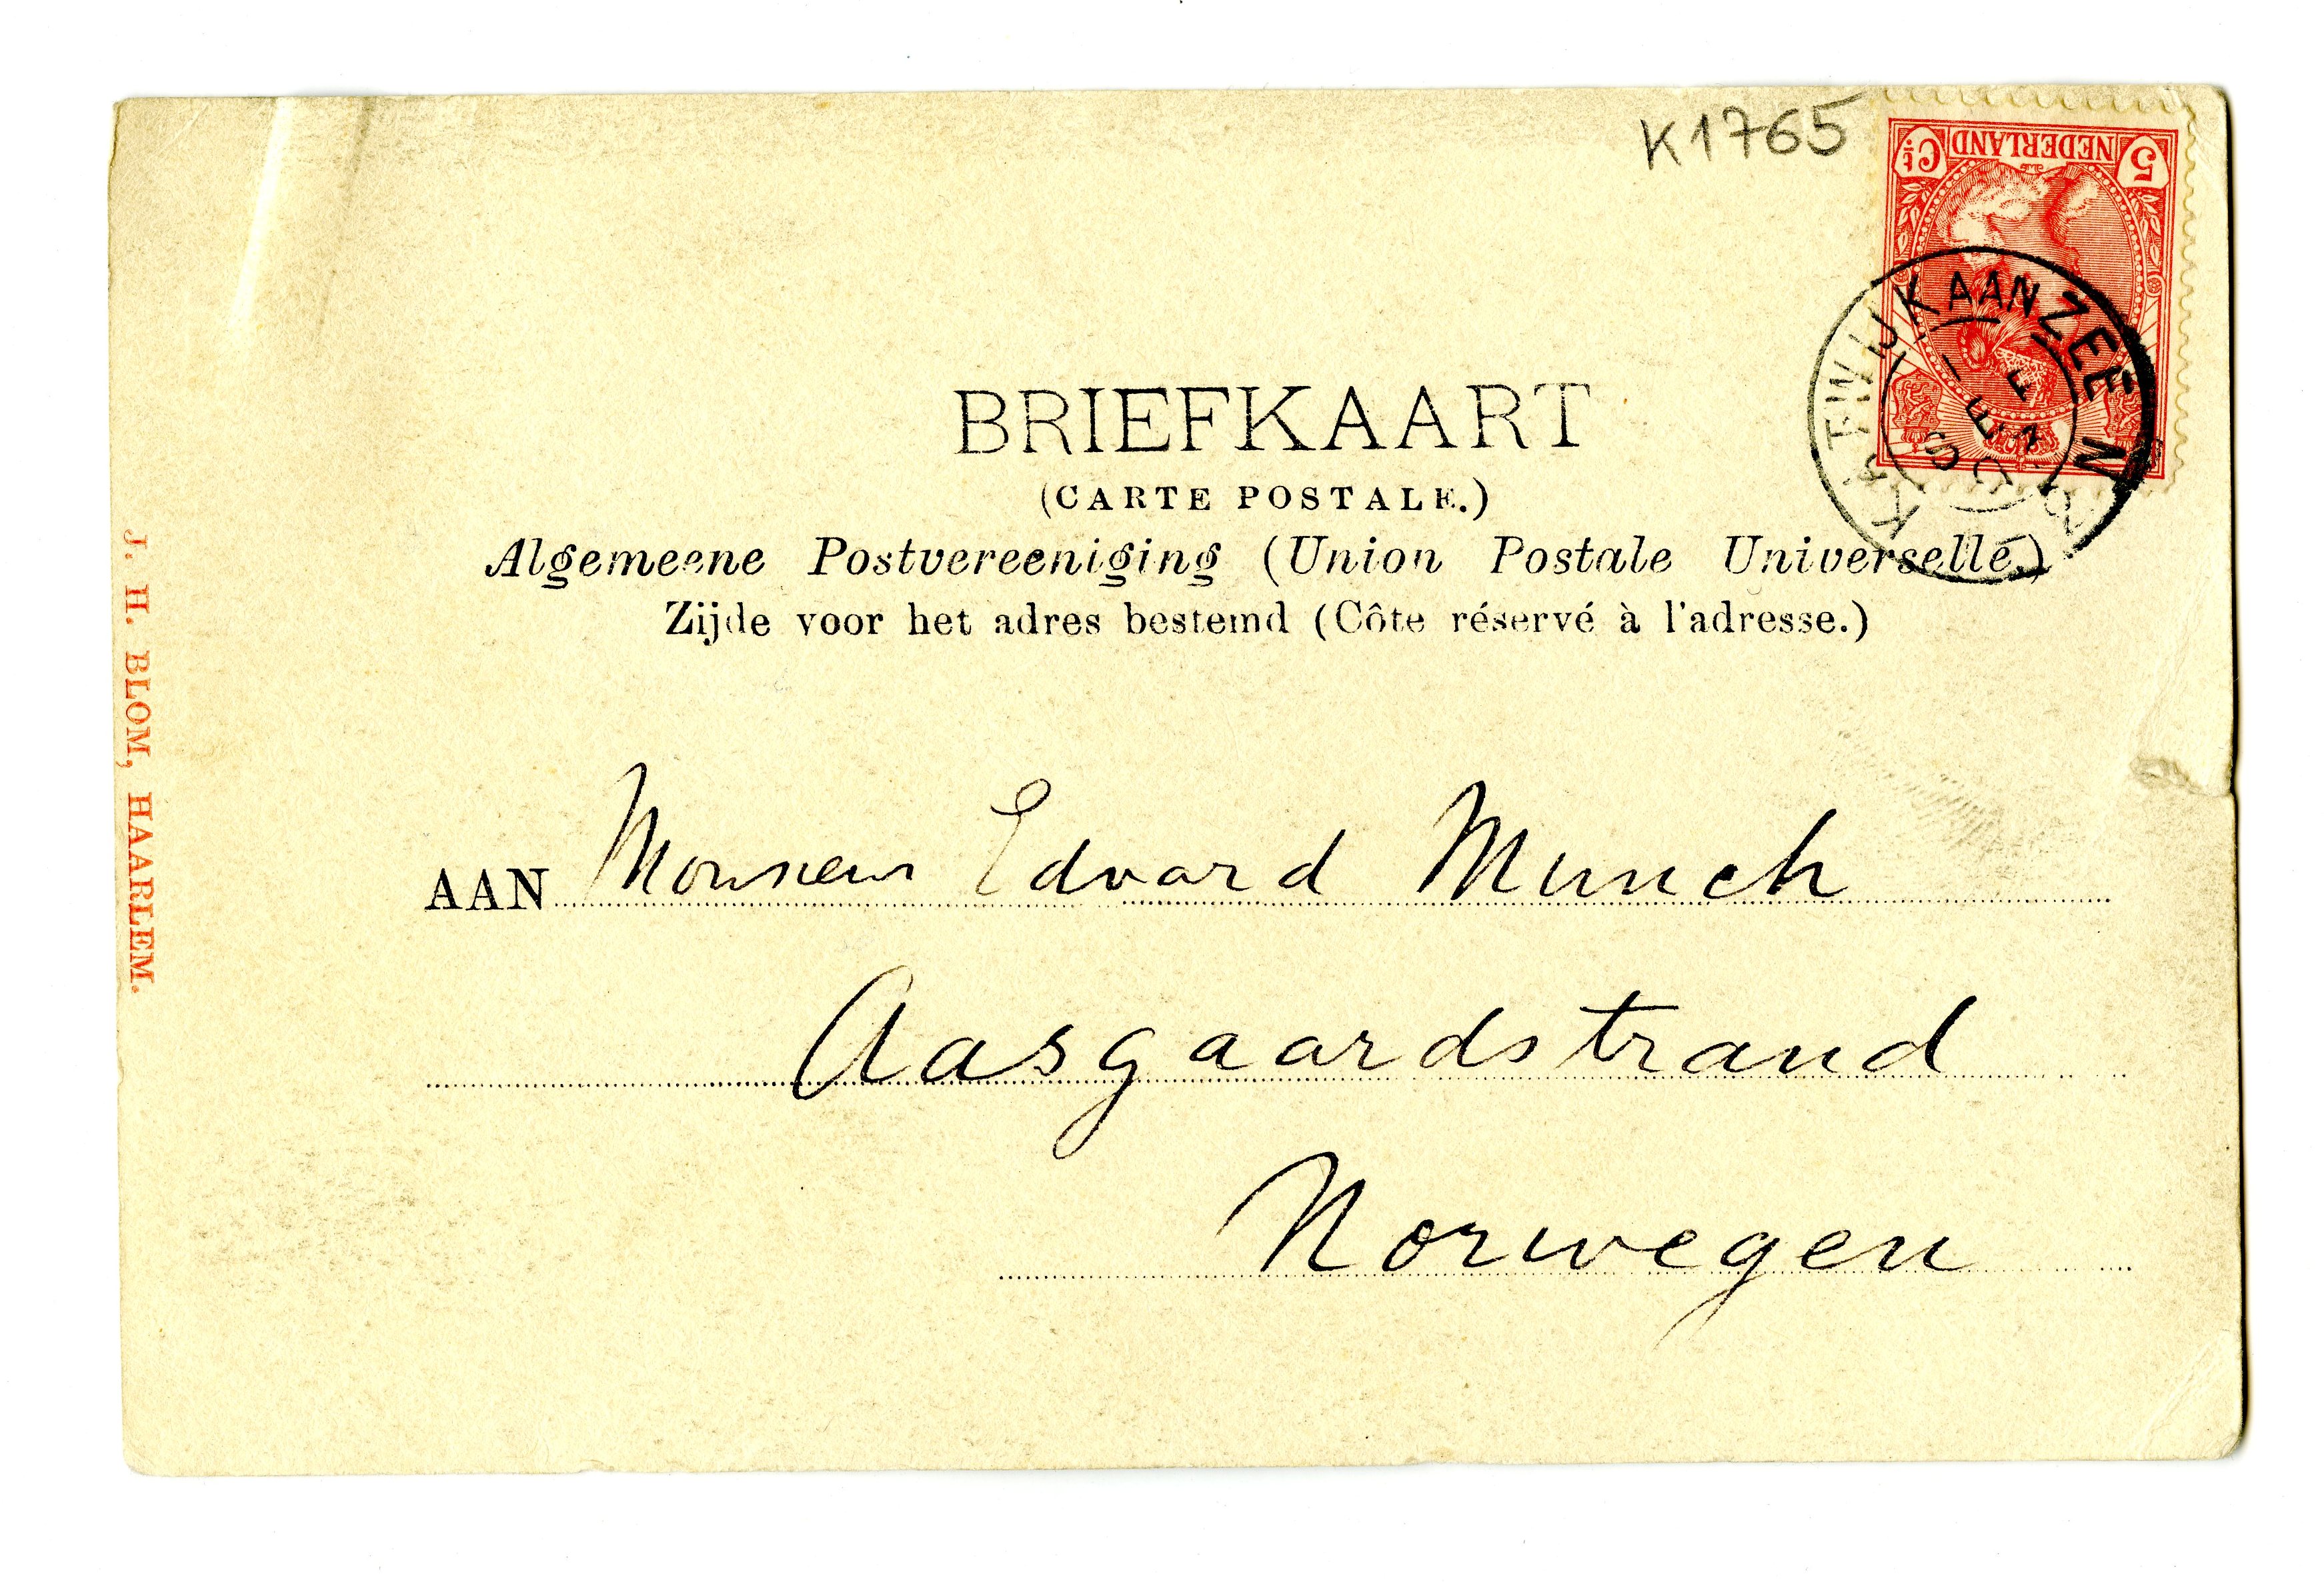 K1765
5 NEDERLAND Ct
KATWIJK AAN ZEE
BRIEFKAART
(CARTE POSTALE.)
Algemeene Postvereeniging (Union Postale Universelle.)
Zijde voor het adres bestemd (Côte réservé à l'adresse.)
AAN Monsieur Edvard Munch
Aasgaardstrand
Norwegen
J. H. BLOM, HAARLEM.